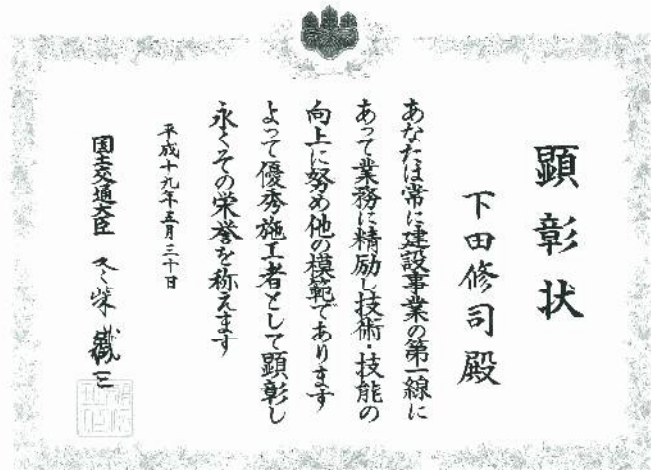 顕彰状
下田修司殿
あなたは常に建設事業の第一線に
あって業務に精励し技術・技能の
向上に努め他の模範であります
よって優秀施工者として顕彰し
永くその栄誉を称えます
平成十九年五月三十日
国土交通大臣 冬柴鐵三